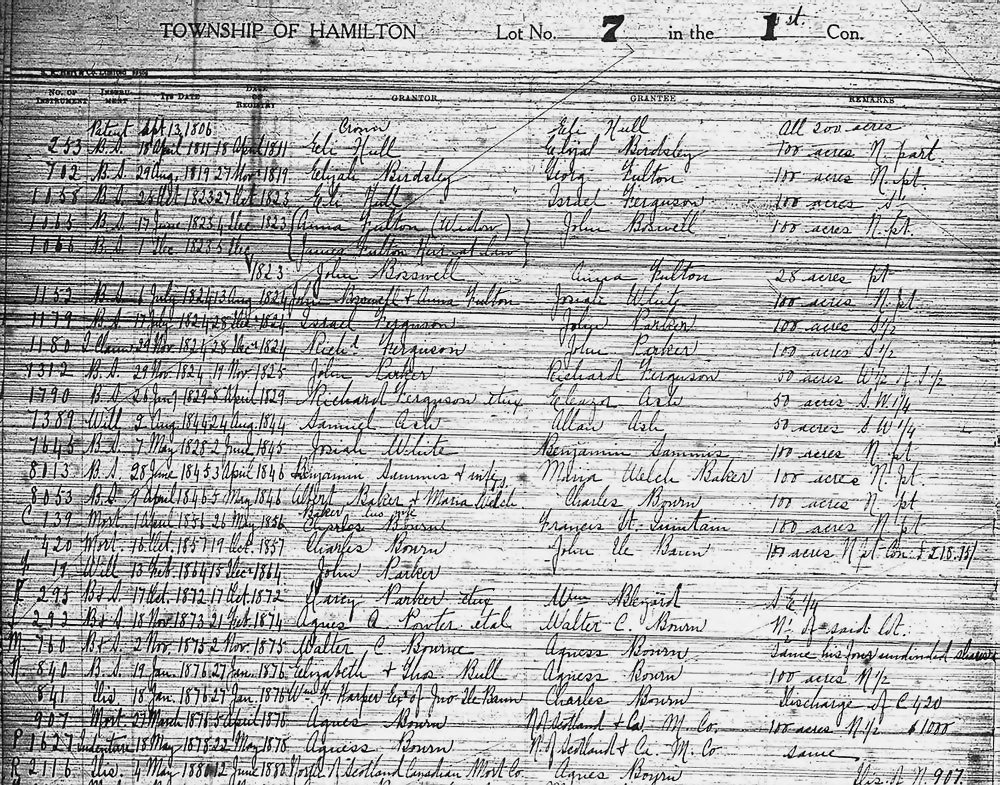 TOWNSHIP OF HAMILTON Lot No. 7 in the 1st. Con.
No. of Instrument Instrument Its Date Date Registry GRANTOR GRANTEE REMARKS
Patent Sept 13, 1806 Crown Eli Hull All 200 acres
253 B.S. 18 April 1811 18 April 1811 Eli Hull Elijah Birdsley 100 acres N. part
702 B.S. 29 Aug. 1819 27 Nov. 1819 Elijah Birdsley Georg Fulton 100 acres N. pt.
1058 B.S. 1823 27 Oct 1823 Eli Hull Israel Ferguson 100 acres S
17 June 1823 4 Dec 1823 (Anna Fulton (Widow) John Boswell 100 acres N. pt.
1066 B.S. 1 Dec. 1823 5 Dec (James Fulton Heir at law)
1823 John Bosswell Anna Fulton 28 acres pt
1152 B.S. 1 July 1824 13 Aug 1824 John Boswell & Anna Fulton Josiah White 100 acres N. pt.
1179 B.S. 17 July 1824 28 Dec 1824 Israel Ferguson John Parker 100 acres S 1/2
1180 29 Nov. 1824 28 Dec 1824 Richd Ferguson John Parker 100 acres S 1/2
1312 B.S. 29 Nov 1824 19 Nov. 1825 John Parker Richard Ferguson 50 acres W 1/2 of S 1/2
1790 B.S. 1829 8 April 1829 Richard Ferguson etux Eleazar Ash 50 acres S. W 1/4
7389 Will 9 Aug 1844 24 Aug. 1844 Samuel Ash Allan Ash 50 acres S W 1/4
7645 B.S. 7 May 1828 2 June 1845 Josiah White Benjamin Sammis 100 acres N. pt
8013 B.S. 28 June 1845 3 April 1846 Benjamin Sammis & wife Maria Welch Baker 100 acres N. Pt.
8053 B.S. 9 April 1846 5 May 1846 Albert Baker & Maria Welch Charles Bourn 100 acres N pt
Baker his wife
C 139 Mort. 1 April 1856 26 May 1856 Charles Bourn Francis St. Quintain 100 acres N pt
420 Mort. 16 Oct. 1857 19 Oct. 1857 Charles Bourn John De Baun 100 acres N pt Con. £218.15/
19 Will 13 Feb. 1864 15 Dec 1864 John Parker
295 B & S. 17 Oct. 1872 17 Oct. 1872 Harey Parker etux Wm S.E 1/4
292 B & S. 18 Nov 1873 21 Feb. 1874 Agnes A Powter etal Walter C. Bourn N 1/2 of said lot.
M. 760 B & S. 2 Nov. 1875 2 Nov. 1875 Walter C Bourne Agness Bourn Same his undivided shares
N. 840 B. S. 19 Jan. 1876 27 Jan. 1876 Elizabeth & Thos. Bull Agness Bourn 100 acres N 1/2
841 Dis 18 Jan. 1876 27 Jan 1876 Wm F. Harper Exr of Jno De Baun Charles Bourn Discharge of C 420
907 Mort 27 March 1876 5 April 1876 Agnes Bourn N. of Scotland & Ca. M. Co. 100 acres N 1/2 $1000
P 1627 Indenture 18 May 1878 22 May 1878 Agness Bourn N. of Scotland & Ca. M. Co same
R 2116 Dis. 4 May 1880 12 June 1880 North of Scotland Canadian Mort Co. Agnes Bourn Dis. of N. 907.